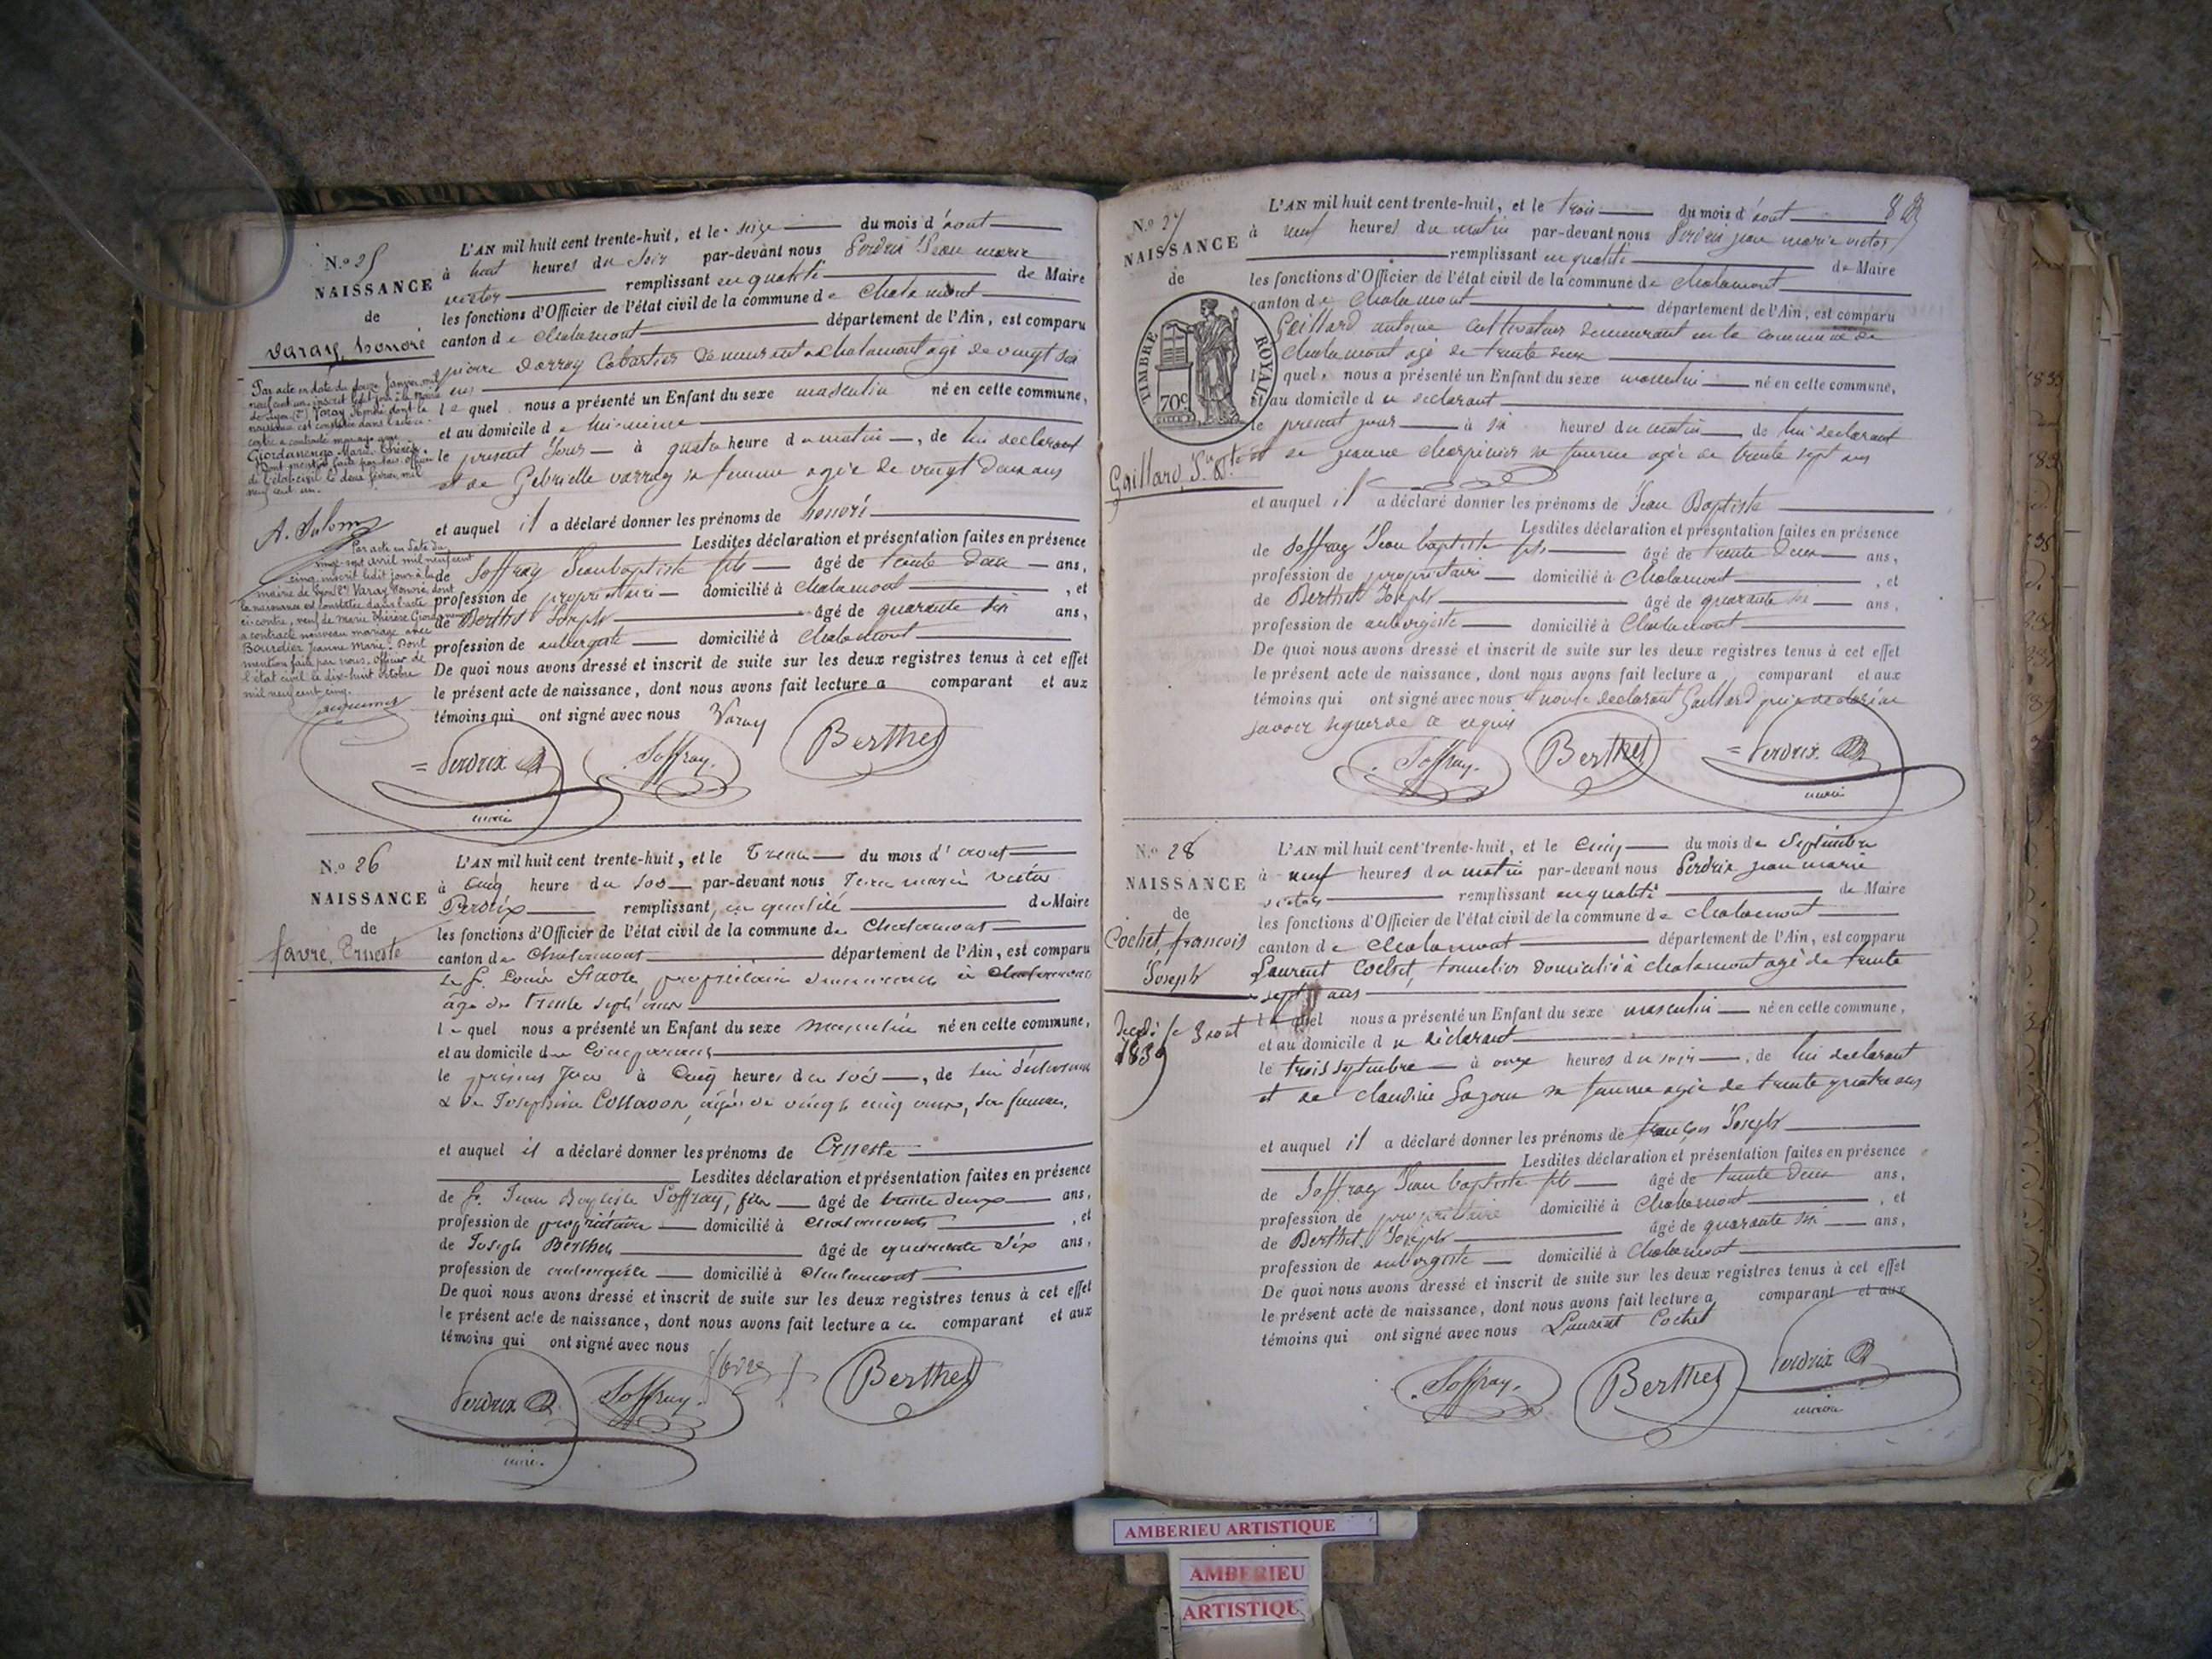 N.º 25
NAISSANCE
de
Varay, honoré
L'AN mil huit cent trente-huit, et le seize du mois d'aout
à huit heures du soir par-devant nous Perdrix Jean marie
victor remplissant en qualité de Maire
les fonctions d'Officier de l'état civil de la commune de Chalamont
canton de Chalamont département de l'Ain, est comparu
pierre Varray Cabartier demeurant a chalamont agé de vingt six
ans
lequel nous a présenté un Enfant du sexe masculin né en cette commune,
et au domicile de lui-même
le present Jour à quatre heure du matin, de lui declarant
et de Gebrielle varray sa femme agée de vingt deux ans
et auquel il a déclaré donner les prénoms de honoré
Lesdites déclaration et présentation faites en présence
de Soffray Jean baptiste fils âgé de trente deux ans,
profession de propriétaire domicilié à Chalamont, et
de Berthet Joseph âgé de quarante six ans,
profession de aubergiste domicilié à Chalamont
De quoi nous avons dressé et inscrit de suite sur les deux registres tenus à cet effet
le présent acte de naissance, dont nous avons fait lecture a comparant et aux
témoins qui ont signé avec nous Varay
Perdrix Soffray Berthet
maire
Par acte en date du douze Janvier mil
neuf cent un, inscrit ledit jour à la mairie
de Lyon Varay Honoré dont la
naissance est constatée dans l'acte ci-
contre a contracté mariage avec
Giordanengo Marie Thérèse.
Dont mention faite par nous officier
de l'état-civil le deux février mil
neuf cent un.
Par acte en date du
vingt-sept avril mil neuf cent
cinq, inscrit ledit jour à la
mairie de Lyon Varay Honoré, dont
la naissance est constatée dans l'acte
ci-contre, veuf de Marie Thérèse
a contracté nouveau mariage avec
Bourdier Jeanne Marie. Dont
mention faite par nous, officier de
l'état civil le dix-huit octobre
mil neuf cent cinq.
N.º 26
NAISSANCE
de
favre, Erneste
L'AN mil huit cent trente-huit, et le Trente du mois d'aout
à cinq heure du soir par-devant nous Jean marie victor
Perdrix remplissant en qualité de Maire
les fonctions d'Officier de l'état civil de la commune de Chalamont
canton de Chalamont département de l'Ain, est comparu
Le S. Louis Favre, propriétaire demeurant à Chalamont
âgé de trente sept ans
lequel nous a présenté un Enfant du sexe masculin né en cette commune,
et au domicile du Comparant
le présent Jour à Cinq heures du soir, de lui déclarant
& de Josephine Collavon, agée de vingt cinq ans, sa femme.
et auquel il a déclaré donner les prénoms de Erneste
Lesdites déclaration et présentation faites en présence
de S. Jean Baptiste Soffray, fils âgé de trente deux ans,
profession de propriétaire domicilié à chalamont, et
de Joseph Berthet âgé de quarante six ans,
profession de aubergiste domicilié à Chalamont
De quoi nous avons dressé et inscrit de suite sur les deux registres tenus à cet effet
le présent acte de naissance, dont nous avons fait lecture a u comparant et aux
témoins qui ont signé avec nous
favre
Perdrix Soffray Berthet
maire
N.º 27
NAISSANCE
de
TIMBRE ROYAL
70c
Gaillard, Jn Bte
L'AN mil huit cent trente-huit, et le trois du mois d'aout
à neuf heures du matin par-devant nous Perdrix jean marie victor
remplissant en qualité de Maire
les fonctions d'Officier de l'état civil de la commune de Chalamont
canton de Chalamont département de l'Ain, est comparu
Gaillard antoine cultivateur demeurant en la commune de
Chalamont agé de trente deux
lequel nous a présenté un Enfant du sexe masculin né en cette commune,
et au domicile du declarant
le present jour à six heures du matin de lui declarant
et de jeanne charpinier sa femme agée de trente sept ans
et auquel il a déclaré donner les prénoms de Jean Baptiste
Lesdites déclaration et présentation faites en présence
de Soffray Jean baptiste fils âgé de trente deux ans,
profession de propriétaire domicilié à Chalamont, et
de Berthet Joseph âgé de quarante six ans,
profession de aubergiste domicilié à Chalamont
De quoi nous avons dressé et inscrit de suite sur les deux registres tenus à cet effet
le présent acte de naissance, dont nous avons fait lecture a comparant et aux
témoins qui ont signé avec nous et non le declarant Gaillard
savoir signer de ce requis
Soffray Berthet Perdrix
maire
N.º 28
NAISSANCE
de
Cochet francois
Joseph
Decedé le 3 aout
1839
L'AN mil huit cent trente-huit, et le Cinq du mois de Septembre
à neuf heures du matin par-devant nous Perdrix jean marie
victor remplissant en qualité de Maire
les fonctions d'Officier de l'état civil de la commune de chalamont
canton de Chalamont département de l'Ain, est comparu
Laurent Cochet, tonnelier domicilié à chalamont agé de trente
sept ans
lequel nous a présenté un Enfant du sexe masculin né en cette commune,
et au domicile du déclarant
le trois septembre à onze heures du soir, de lui declarant
et de claudine sa femme agée de trente quatre ans
et auquel il a déclaré donner les prénoms de françois Joseph
Lesdites déclaration et présentation faites en présence
de Soffray Jean baptiste fils âgé de trente deux ans,
profession de propriétaire domicilié à Chalamont, et
de Berthet Joseph âgé de quarante six ans,
profession de aubergiste domicilié à Chalamont
De quoi nous avons dressé et inscrit de suite sur les deux registres tenus à cet effet
le présent acte de naissance, dont nous avons fait lecture a comparant et aux
témoins qui ont signé avec nous Laurent Cochet
Soffray Berthet Perdrix
maire
AMBERIEU ARTISTIQUE
AMBERIEU
ARTISTIQU